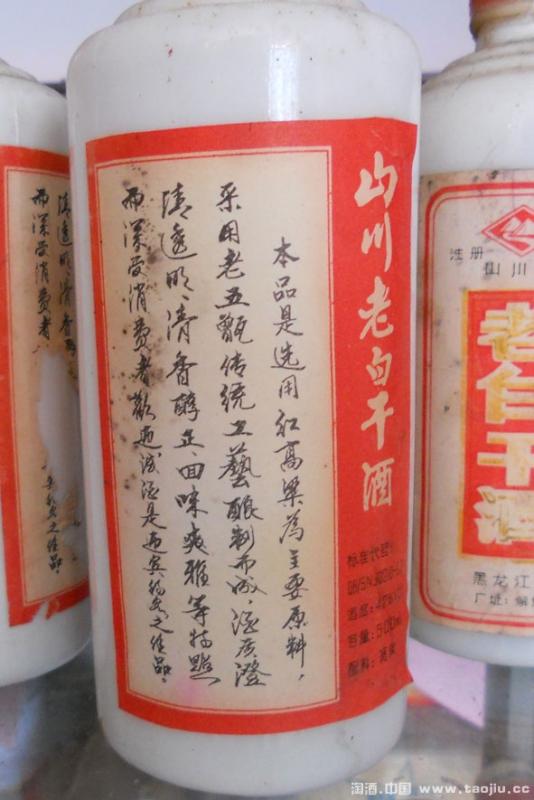 山川老白干酒
标准代号:
酒度:
容量:500ml
配料:高粱
本品是选用红高粱為主要原料，
采用老五甑传统工藝酿制而成，酒质澄
清透明、清香醇正、回味爽雅等特點
而深受消费者歡迎诚酒是迎宾待友之佳品。
清透明、清香醇
而深受消费者
友之佳品。
注册
山川
老白干酒
黑龙江
厂址:解
淘酒.中国 www.taojiu.cc